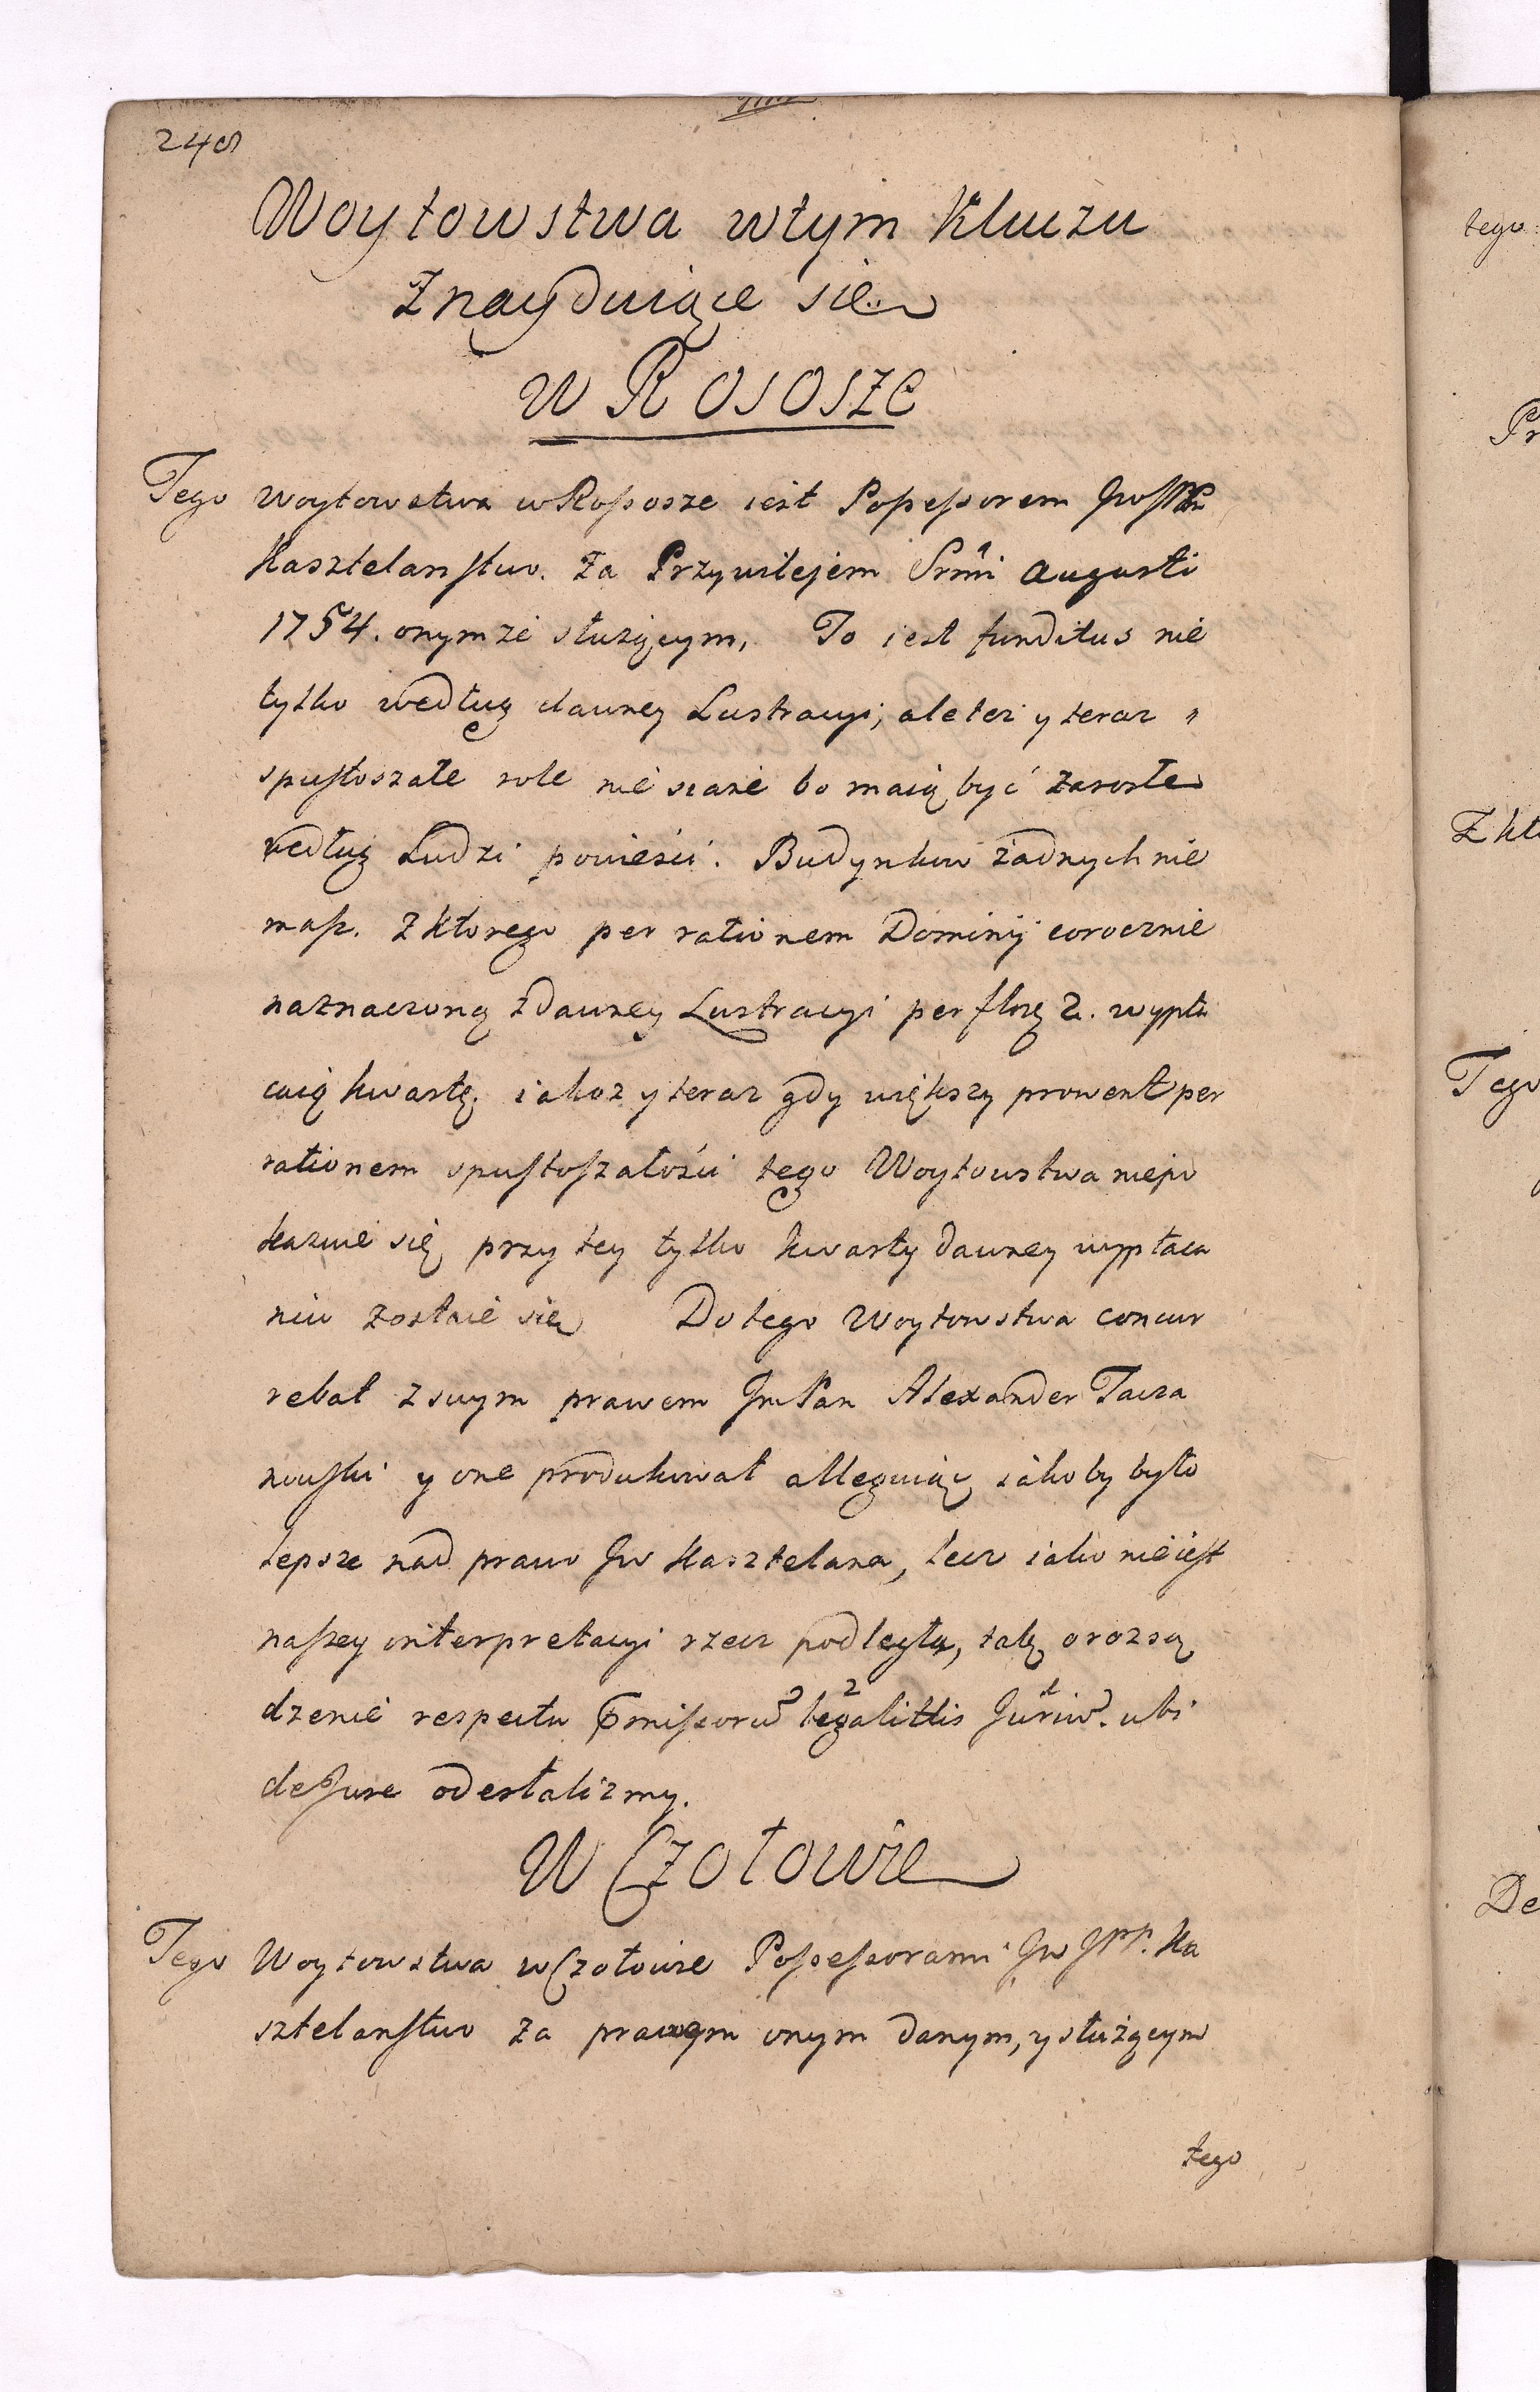 248
Woytowstwa wtym Kluczu
Znayduiące się
w Rososze
Tego woytowstwa w Rossosze iest Possessorem
Kasztelanstwo. Za Przywilejem Srmi Augusti
1754. onymże słuzącym, To iest funditus nie
tylko według dawney Lustracyi, ale też y teraz
spustoszałe role nie siane bo maią być zarosłe
według Ludzi powieści. Budynkow żadnych nie
masz. Z ktorego per rationem Dominij corocznie
naznaczoną z dawney Lustracyi per flor 2. wypła
caią kwartę. iakoz y teraz gdy większy prowent per
rationem spustoszałości tego Woytowstwa niepo
kazuie się przy tey tylko kwarty dawney wypłaca
niu zostaie się Do tego Woytowstwa concur
rebat z swym prawem Jm Pan Alexander Tacza
nowski y one produkował alleguiąc iakoby było
lepsze nad prawo Jw Kasztelana, lecz iako nie iest
naszey interpretacyi rzecz podległa, tak o rozsą
dzenie respectu legalitatis Juriu. ubi
de Jure odesłalizmy.
W Czołowie
Tego Woytowstwa w Czołowie Possessorami Jw JPP. Ka
sztelanstwo za prawem onym danym, y służącym
tego
tego
Pr
Z kto
Tego
De